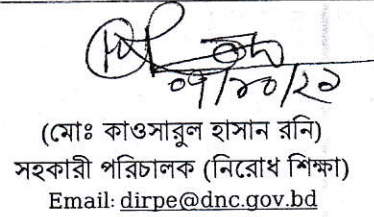 ০৭/১০/২১
(মোঃ কাওসারুল হাসান রনি)
সহকারী পরিচালক (নিরোধ শিক্ষা)
Email: dirpe@dnc.gov.bd